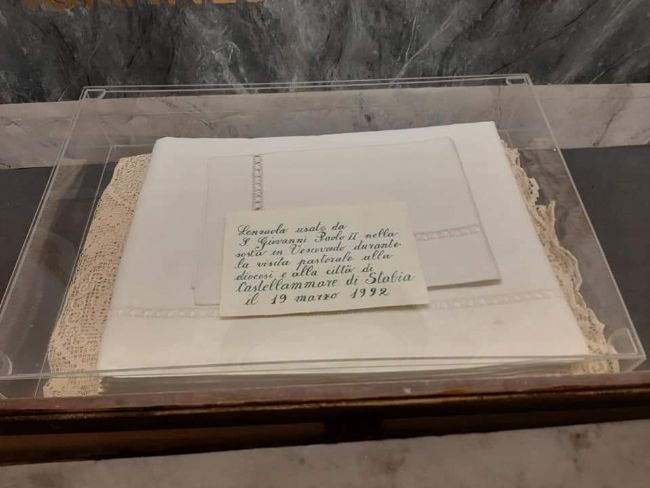 Lenzuola usate da
S. Giovanni Paolo II nella
sosta in Vescovado durante
la visita pastorale alla
diocesi e alla città di
Castellammare di Stabia
il 19 marzo 1992